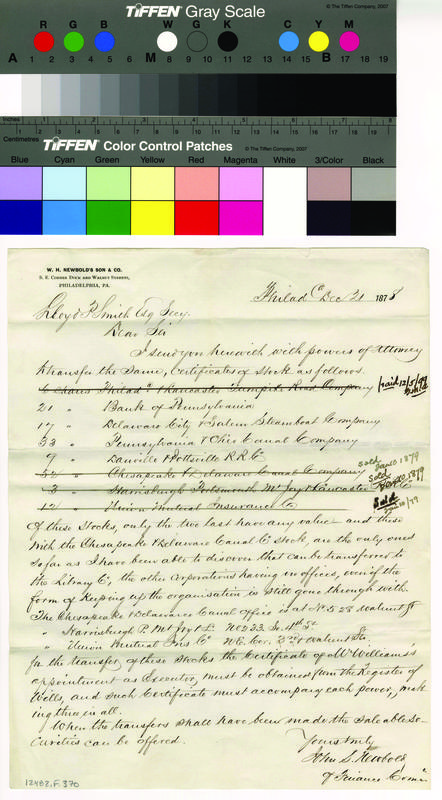 R G B W G K C Y M
TIFFEN Gray Scale
© The Tiffen Company, 2007
A 1 2 3 4 5 6 M 8 9 10 11 12 13 14 15 B 17 18 19
Inches 1 2 3 4 5 6 7 8
Centimetres 1 2 3 4 5 6 7 8 9 10 11 12 13 14 15 16 17 18 19
TIFFEN Color Control Patches
© The Tiffen Company, 2007
Blue Cyan Green Yellow Red Magenta White 3/Color Black
W. H. NEWBOLD'S SON & CO.
S. E. Corner Dock and Walnut Streets,
PHILADELPHIA, PA.
Philada Dec 21 1878
Lloyd P. Smith Esq Secy.
Dear Sir
I send you herewith with powers of Attorney
to transfer the same, Certificates of stock as follows.
Shares Philada & Lancaster Turnpike Road Company paid 12/5/99
21 " Bank of Pennsylvania
17 " Delaware City & Salem Steamboat Company
33 " Pennsylvania & Ohio Canal Company
9 " Danville & Pottsville R.R. Co
52 " Chesapeake & Delaware Canal Company sold 1879
3 " Harrisburgh Portsmouth Mt Joy & Lancaster Sold 1879
12 " Union Mutual Insurance Co Sold /79
Of these stocks, only the two last have any value and these
with the Chesapeake & Delaware Canal Co stock, are the only ones
so far as I have been able to discover that can be transferred to
the Library Co, the other Corporations having no offices, even if the
form of keeping up the organization is still gone through with.
The Chesapeake & Delaware Canal office is at No 528 Walnut St
" Harrisburgh P. Mt Joy & L. No 223 So. 4th St.
" Union Mutual Ins Co N.E. Cor. 3rd & Walnut Sts.
For the transfer of these stocks the Certificate of Mr Williams's
appointment as Executor, must be obtained from the Register of
Wills, and such Certificate must accompany each power, mak
ing three in all.
When the transfers shall have been made the saleable se-
curities can be offered.
Yours truly
John S. Newbold
of Finance Come
12482.F.370